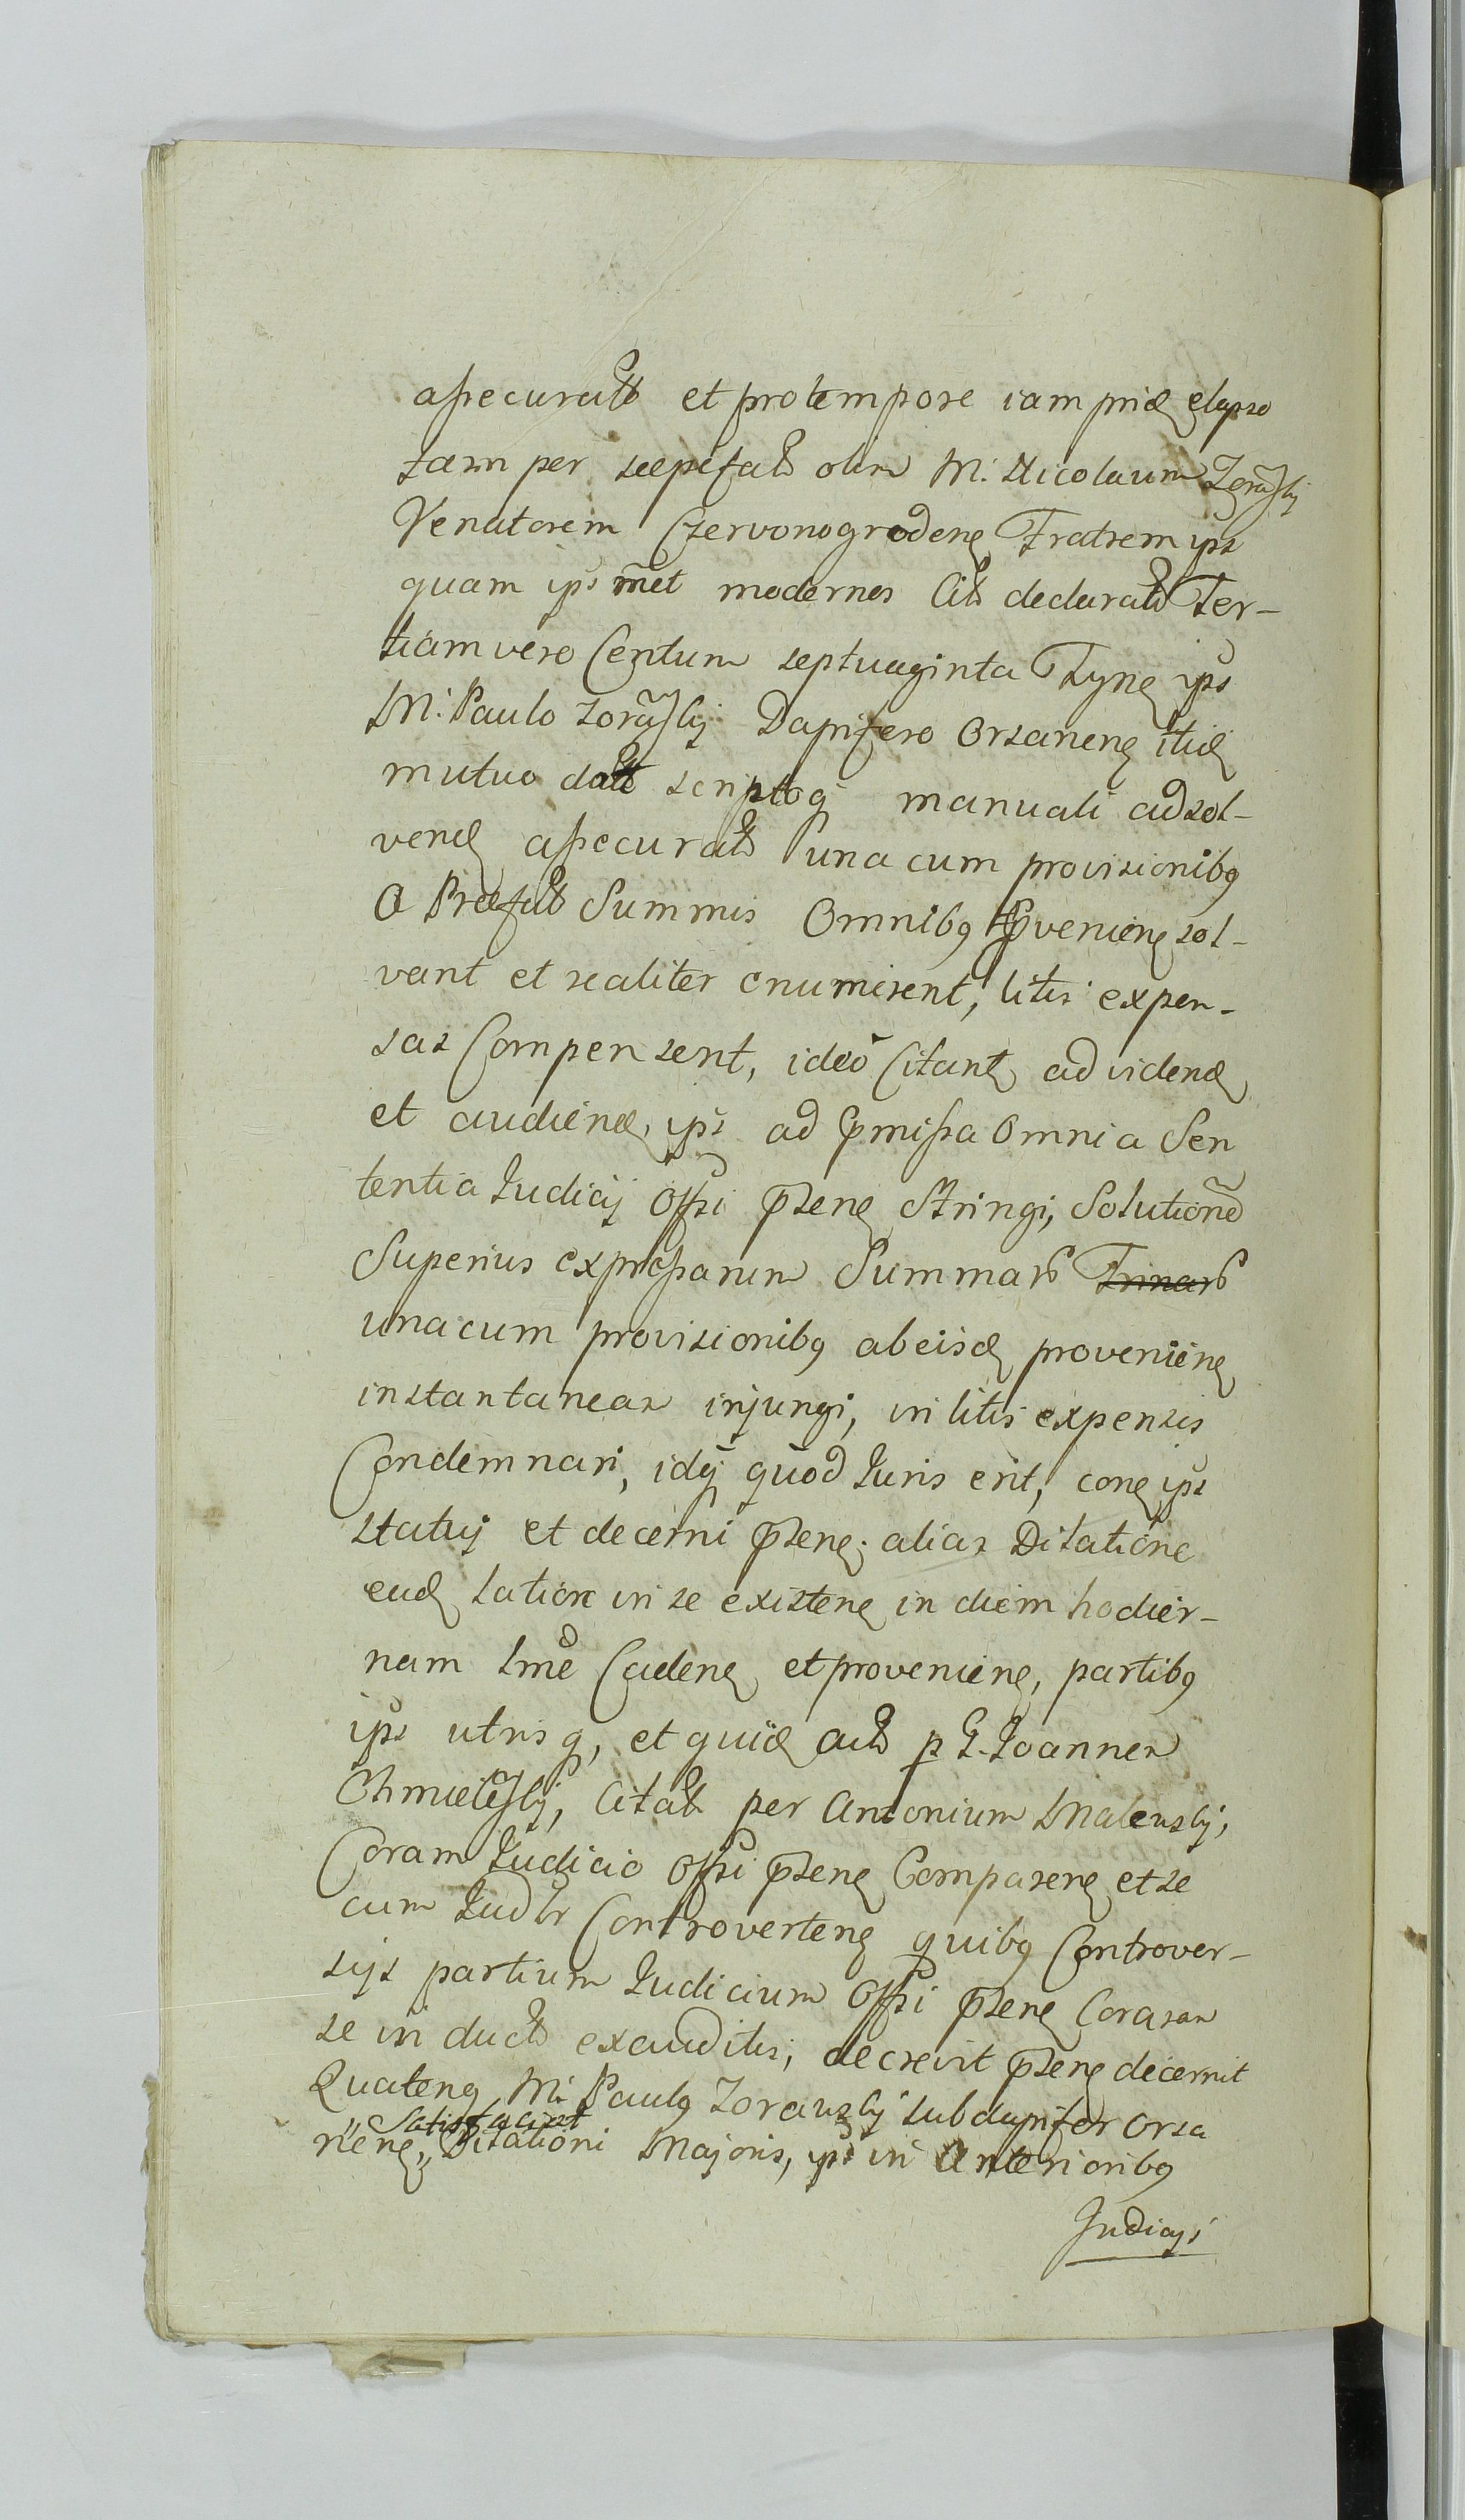 assecurat et pro tempore iam prid elapso
tam per sæpefat olim M. Nicolaum Zoraslij
Venatorem Czervonogrodens Fratrem ips
quam ips met modernos Cit declarat Ter-
tiam vero Centum septuaginta Tyns ips
M. Paulo Zoraslij Dapifero Orsanens itid
mutuo dat scriptoq manuali ad sol-
vend assecurat una cum provisionibq
a Præfat Summis Omnibq pvenien sol-
vant et realiter enumerent, litis expen-
sas Compensent, ideo Citant ad vidend
et audiend, ips ad pmissa Omnia Sen
tentia Iudicij Offsi psens Stringi, Solutione
Superius expressarum Summar Trinar
una cum provisionibq ab eisd provenien
instantanean injungi, in litis expensis
Condemnari, idq quod Iuris erit, cons ips
statuj et decerni psens. alias Citatione
ead latior in se existens in diem hodier-
nam lme Cadens et provenien, partibq
ips utrisq, et quid act p G. Joannen
Chmieleslij, Citat per Antonium Malewslij,
Coram Iudicio Offsi psens Comparens et se
cum Iudlr Controvertens quibq Controver-
sijs partium Iudicium Offsi psens Coram
se in duct exauditis, decrevit psens decernit
Quatenq M. Paulq Zorauslij Subdapifer Orsa
Satisfaciat
nens, Citationi Majoris, ips in Anterioribq
Judicijs